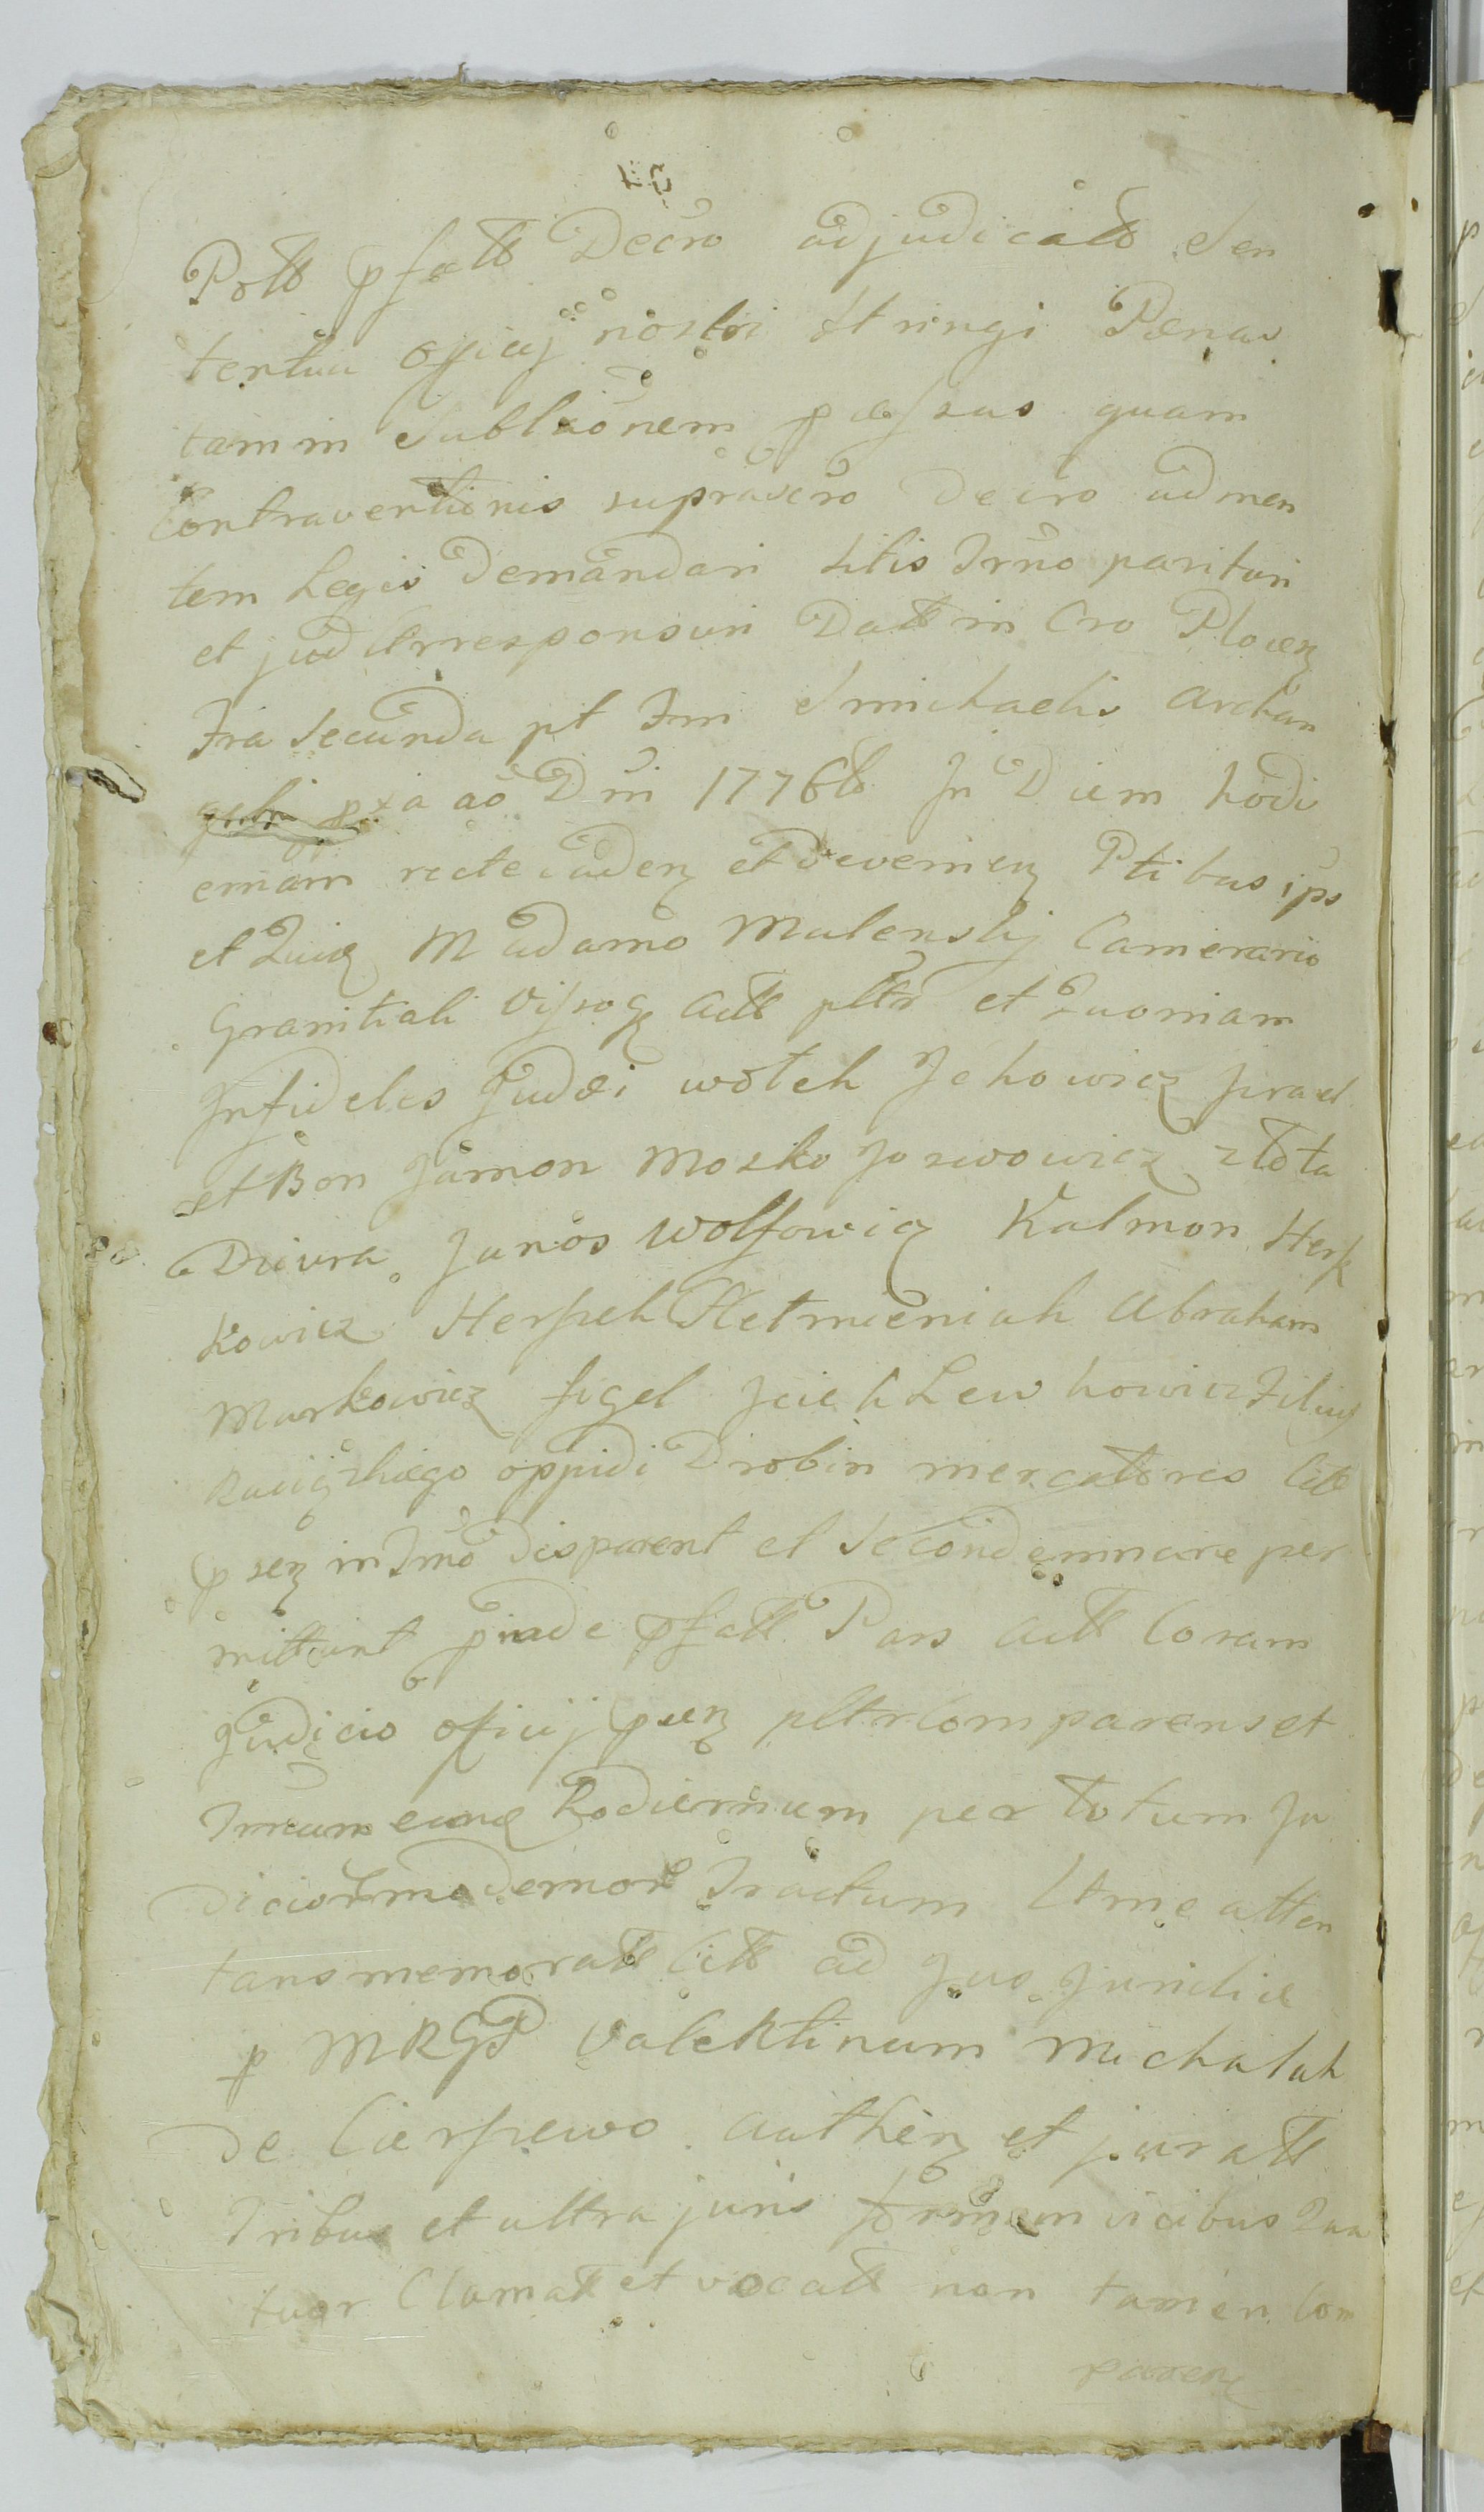 Pott pfatt Decro adjudicatt Sen
tentia officij nostri stringi Pœnas
tam in Sublaonem pœssas quam
Contraventionis suprascro Decro ad men
tem Legis Demandari sitis Trno parituri
et jud Crresponsuri Datt in Cro Plocen
Fria Secunda pt Fm S michaelis archan
geli pxa ao Dni 1776tt In Diem hodi
ernam recte caden et devenien Ptibus ips
et M adamo Mulenskij Camerario
Granitiali Actt pltr et Quoniam
Infideles Judæi wolek Jckowicz Jzrael
et Bon Jamon Mosko Joswowicz złota
Janos Wolfowicz Kalmon Hersz
kowicz Herszek Hetmieniak Abraham
Markowicz figel Jciek Lewkowicz Filius
oppidi Drobin mercatores Citt
psen in Trno disparent et Se condemnare per
mittunt pinde pfatt Pars Actt Coram
Judicio oficij psen pltr Comparens et
Trnum eunq hodiernum per totum Ju
dicior modernor Tractum Ltme atten
tans memoratt Citt ad Jus Juridice
p MRGP Valektinum Michalak
de Cierszewo authen et juratt
Tribus et ultra juris formam vicibus Qua
tuor Clamatt et vocatt non tamen Com
paren